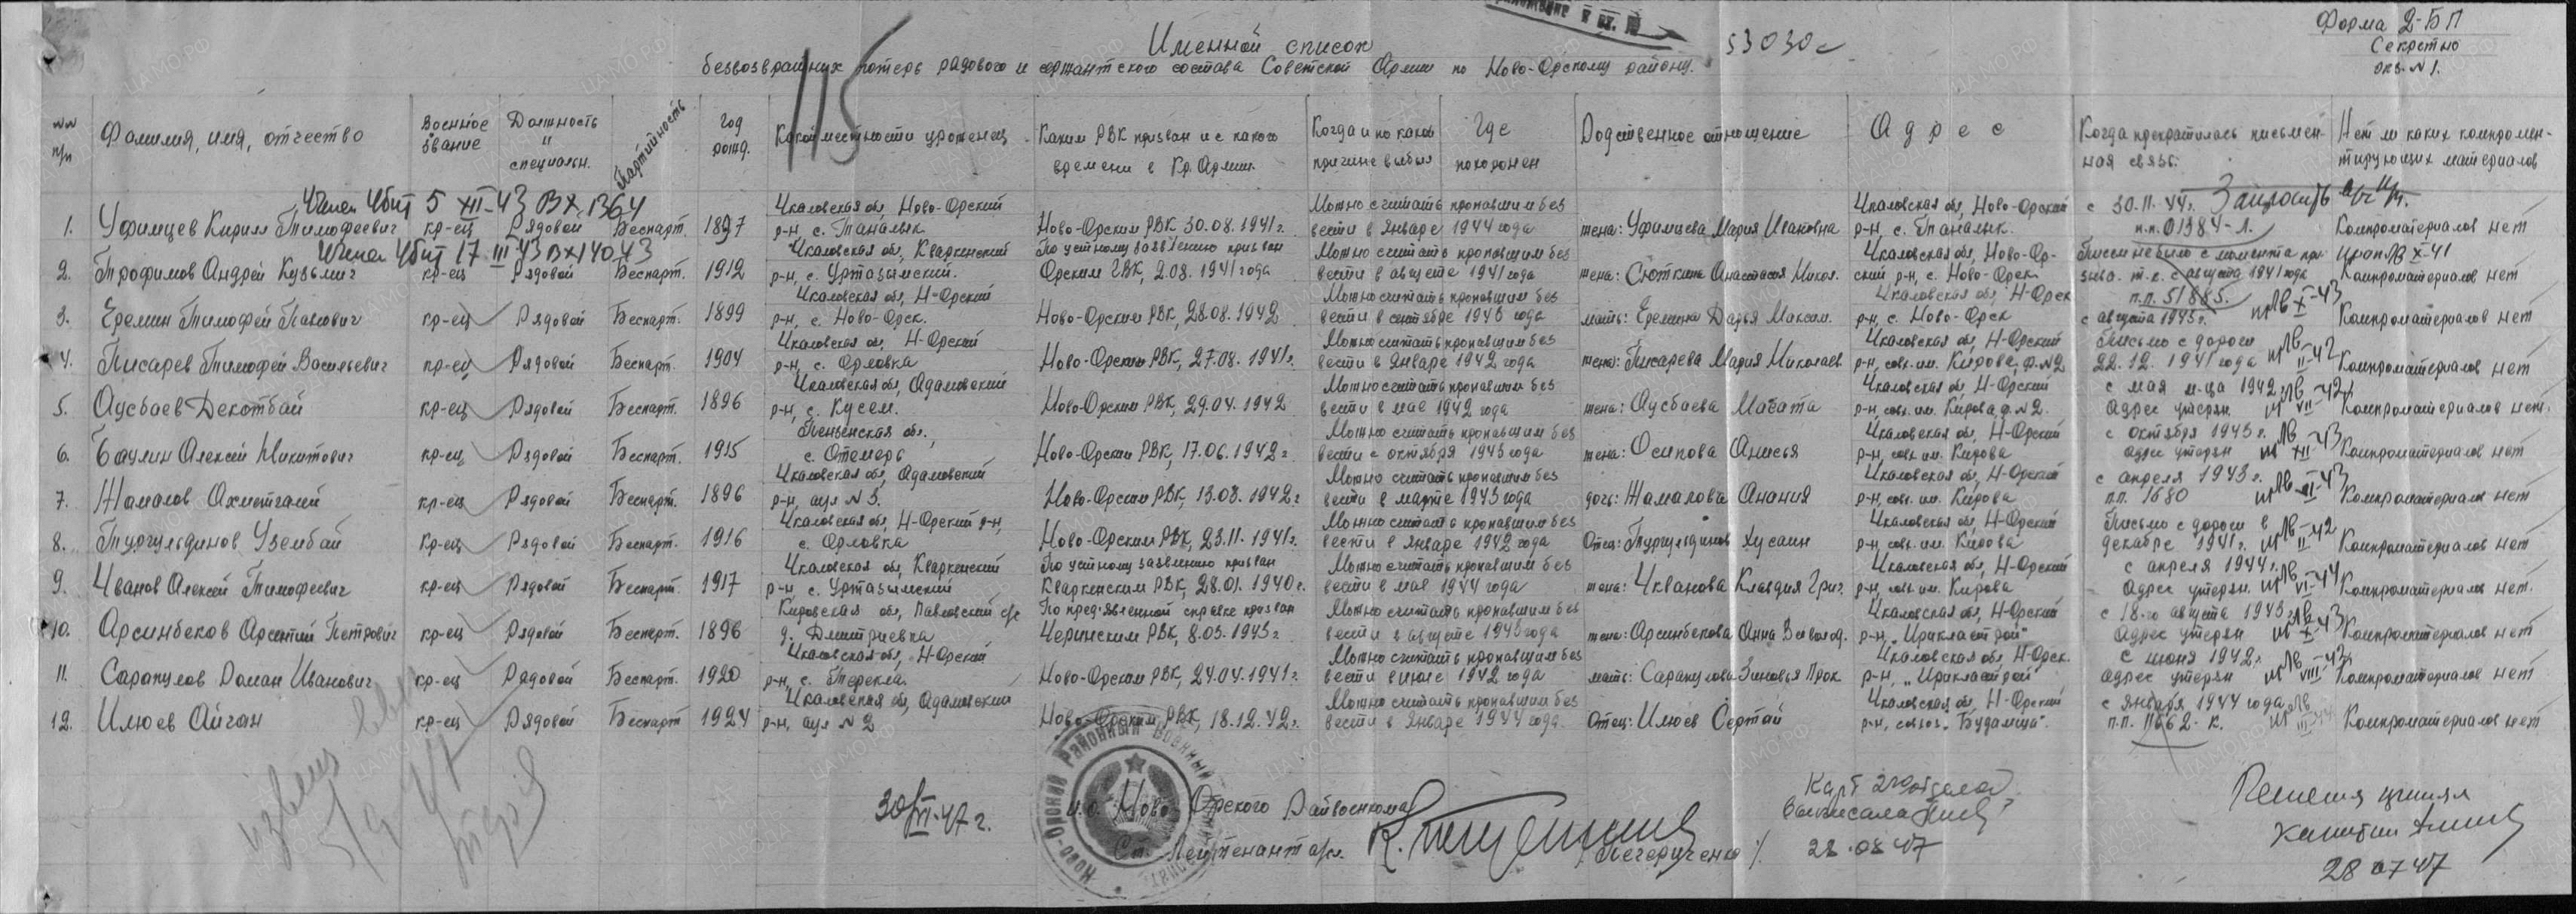 Форма 2-БП
Секретно
экз. N 1.
53030с
115
Именной список
безвозвратных потерь рядового и сержантского состава Советской Армии по Ново-Орскому району.
NN п/п Фамилия, имя, отчество Военное звание Должность и специальн. Партийность Год рожд. Какой местности уроженец Каким РВК призван и с какого времени в Кр. Армии. Когда и по какой причине выбыл Где похоронен Родственное отношение Адрес Когда прекратилась письменная связь. Нет ли каких компроментирующих материалов
убит 5 XII-43 Вх 1364
1. Уфимцев Кирилл Тимофеевич кр-ец Рядовой Беспарт. 1897 Чкаловская обл, Ново-Орский р-н с. Таналык Ново-Орским РВК 30.08.1941г. Можно считать пропавшим без вести в январе 1944 года жена: Уфимцева Мария Ивановна Чкаловская обл, Ново-Орский р-н, с. Таналык. с 30.11.44г. п.п. 01384-Л. Запросить Компроматериалов нет
убит 17 III-43 Вх 14043
2. Трофимов Андрей Кузьмич кр-ец Рядовой Беспарт. 1912 Чкаловская обл, Кваркенский р-н, с. Уртазымский. По устному заявлению призван Орским ГВК, 2.08.1941 года Можно считать пропавшим без вести в августе 1941 года жена: Сюткина Анастасия Никол. Чкаловская обл, Ново-Орский р-н, с. Ново-Орск Писем не было с момента призыва. т.е. с августа 1941 года Компроматериалов нет
3. Еремин Тимофей Павлович кр-ец Рядовой Беспарт. 1899 Чкаловская обл, Н-Орский р-н, с. Ново-Орск. Ново-Орским РВК, 28.08.1942 Можно считать пропавшим без вести в сентябре 1943 года мать: Еремина Дарья Максим. Чкаловская обл, Н-Орск р-н, с. Ново-Орск п.п. 51885. с августа 1943г. Компроматериалов нет
4. Писарев Тимофей Васильевич кр-ец Рядовой Беспарт. 1904 Чкаловская обл, Н-Орский р-н, с. Орловка Ново-Орским РВК, 27.08.1941г. Можно считать пропавшим без вести в январе 1942 года жена: Писарева Мария Николаев. Чкаловская обл, Н-Орский р-н, совх. им. Кирова, ф. N2 Письмо с дороги 22.12.1941 года Компроматериалов нет
5. Аусбаев Декотбай кр-ец Рядовой Беспарт. 1896 Чкаловская обл, Адамовский р-н, с. Кусем. Ново-Орским РВК, 29.04.1942 Можно считать пропавшим без вести в мае 1942 года жена: Аусбаева Магата Чкаловская обл, Н-Орский р-н, совх. им. Кирова ф. N2. с мая м-ца 1942 Адрес утерян Компроматериалов нет.
6. Баулин Алексей Никитович кр-ец Рядовой Беспарт. 1915 Пензенская обл., с. Отмерь Ново-Орским РВК, 17.06.1942г Можно считать пропавшим без вести с октября 1943 года жена: Осипова Анисья Чкаловская обл, Н-Орский р-н, совх. им. Кирова с октября 1943г. адрес утерян Компроматериалов нет
7. Жамалов Ахметгалий кр-ец Рядовой Беспарт. 1896 Чкаловская обл, Адамовский р-н, аул N 5. Ново-Орским РВК, 13.08.1942г Можно считать пропавшим без вести в марте 1943 года дочь: Жамалова Анания Чкаловская обл, Н-Орский р-н, совх. им. Кирова с апреля 1943г. пп. 1680 Компроматериалов нет
8. Тургульдинов Узембай Кр-ец Рядовой Беспарт. 1916 Чкаловская обл, Н-Орский р-н, с. Орловка Ново-Орским РВК, 23.11.1941г. Можно считать пропавшим без вести в январе 1942 года Отец: Тургульдинов Хусаин Чкаловская обл, Н-Орский р-н, совх. им. Кирова Письмо с дороги в декабре 1941г. Компроматериалов нет
9. Чванов Алексей Тимофеевич кр-ец Рядовой Беспарт. 1917 Чкаловская обл, Кваркенский р-н с. Уртазымский По устному заявлению призван Кваркенским РВК, 28.01.1940г. Можно считать пропавшим без вести в мае 1944 года жена: Чванова Клавдия Григ. Чкаловская обл, Н-Орский р-н, совх. им. Кирова с апреля 1944г. Адрес утерян. Компроматериалов нет.
10. Арсинбеков Арсентий Петрович кр-ец Рядовой Беспарт. 1896 Кировская обл, Павловский с/с д. Дмитриевка По пред'явленной справке призван Черинским РВК, 8.03.1943г Можно считать пропавшим без вести в августе 1943 года жена: Арсинбекова Анна Всеволод. Чкаловская обл, Н-Орский р-н, "Ирикластрой" с 18-го августа 1943г. Адрес утерян Компроматериалов нет
11. Сарапулов Роман Иванович кр-ец Рядовой Беспарт. 1920 Чкаловская обл, Н-Орский р-н, с. Терекла Ново-Орским РВК, 24.04.1941г. Можно считать пропавшим без вести в июле 1942 года мать: Сарапулова Зиновья Прок. Чкаловская обл, Н-Орск. р-н, "Ирикластрой" с июня 1942г. адрес утерян Компроматериалов нет
12. Илюев Айган кр-ец Рядовой Беспарт 1924 Чкаловская обл, Адамовский р-н, аул N 2 Ново-Орским РВК, 18.12.42г. Можно считать пропавшим без вести в январе 1944 года. Отец: Илюев Сертай Чкаловская обл, Н-Орский р-н, совхоз "Будамша". с января 1944 года п.п. 11662-К. Компроматериалов нет
30/VI-47г.
и.о. Ново-Орского Райвоенкома
Ст. Лейтенант а/с.
/Печериченко/
Ново-Орский Районный Военный
Карт 2го отдела
выписала
28.08.47
28 07 47